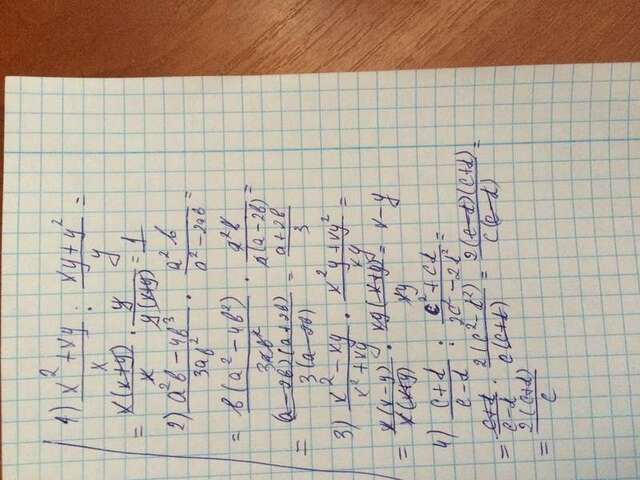 1) (x²+xy)/x : (xy+y²)/y =
= x(x+y)/x · y/y(x+y) = 1
2) (a²b-4b³)/3ab² · a²b/(a²-2ab) =
= b(a²-4b²)/3ab² · a²b/a(a-2b) =
= (a-2b)(a+2b)/3(a-2b) = (a+2b)/3
3) (x²-xy)/(x²+xy) · (x²y+xy²)/xy =
= x(x-y)/x(x+y) · xy(x+y)/xy = x-y
4) (c+d)/(c-d) : (c²+cd)/(2c²-2d²) =
= (c+d)/(c-d) · 2(c²-d²)/c(c+d) = 2(c-d)(c+d)/c(c-d) =
= 2(c+d)/c